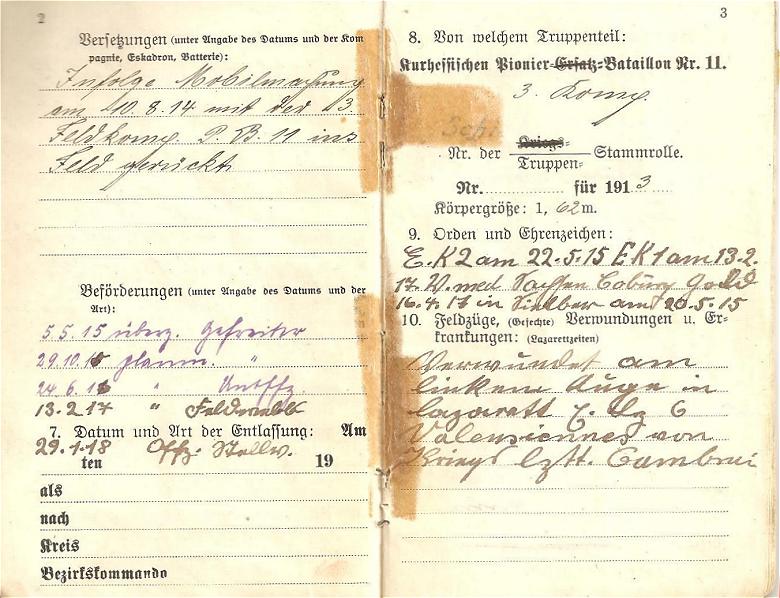 2
Versetzungen (unter Angabe des Datums und der Kom
pagnie, Eskadron, Batterie):
Infolge Mobilmachung
am 10.8.14 mit der 3.
Feldkomp P. B. 11 ins
Feld gerückt.
Beförderungen (unter Angabe des Datums und der
Art):
5.5.15 überz. Gefreiter
29.10.15 "
24.6.16 " Untffz.
13.2.17 " Feldwebel
7. Datum und Art der Entlassung: Am
29.1.18 Offz. Stellv.
ten 19
als
nach
Kreis
Bezirkskommando
3
8. Von welchem Truppenteil:
Kurhessischen Pionier-Ersatz-Bataillon Nr. 11.
3. Komp.
Nr. der Kriegs-
Truppen- Stammrolle.
Nr. für 1913
Körpergröße: 1, 62 m.
9. Orden und Ehrenzeichen:
E.K 2 am 22.5.15 E K 1 am 13.2.
17. V. med Sachsen Coburg Gold
16.4.17 in Silber am 20.5.15
10. Feldzüge, (Gefechte) Verwundungen u. Er-
krankungen: (Lazarettzeiten)
Verwundet am
linken Auge in
Lazarett 6
Valensiennes von
Kriegs lztt. Cambrai